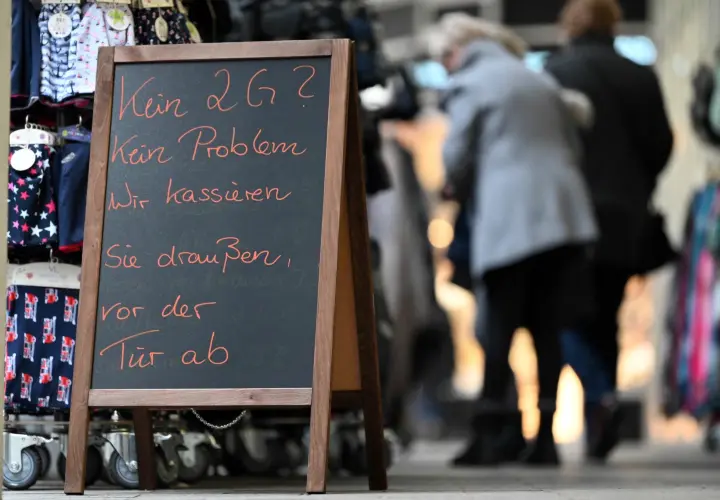 Kein 2G?
Kein Problem
Wir kassieren
Sie draußen,
vor der
Tür ab